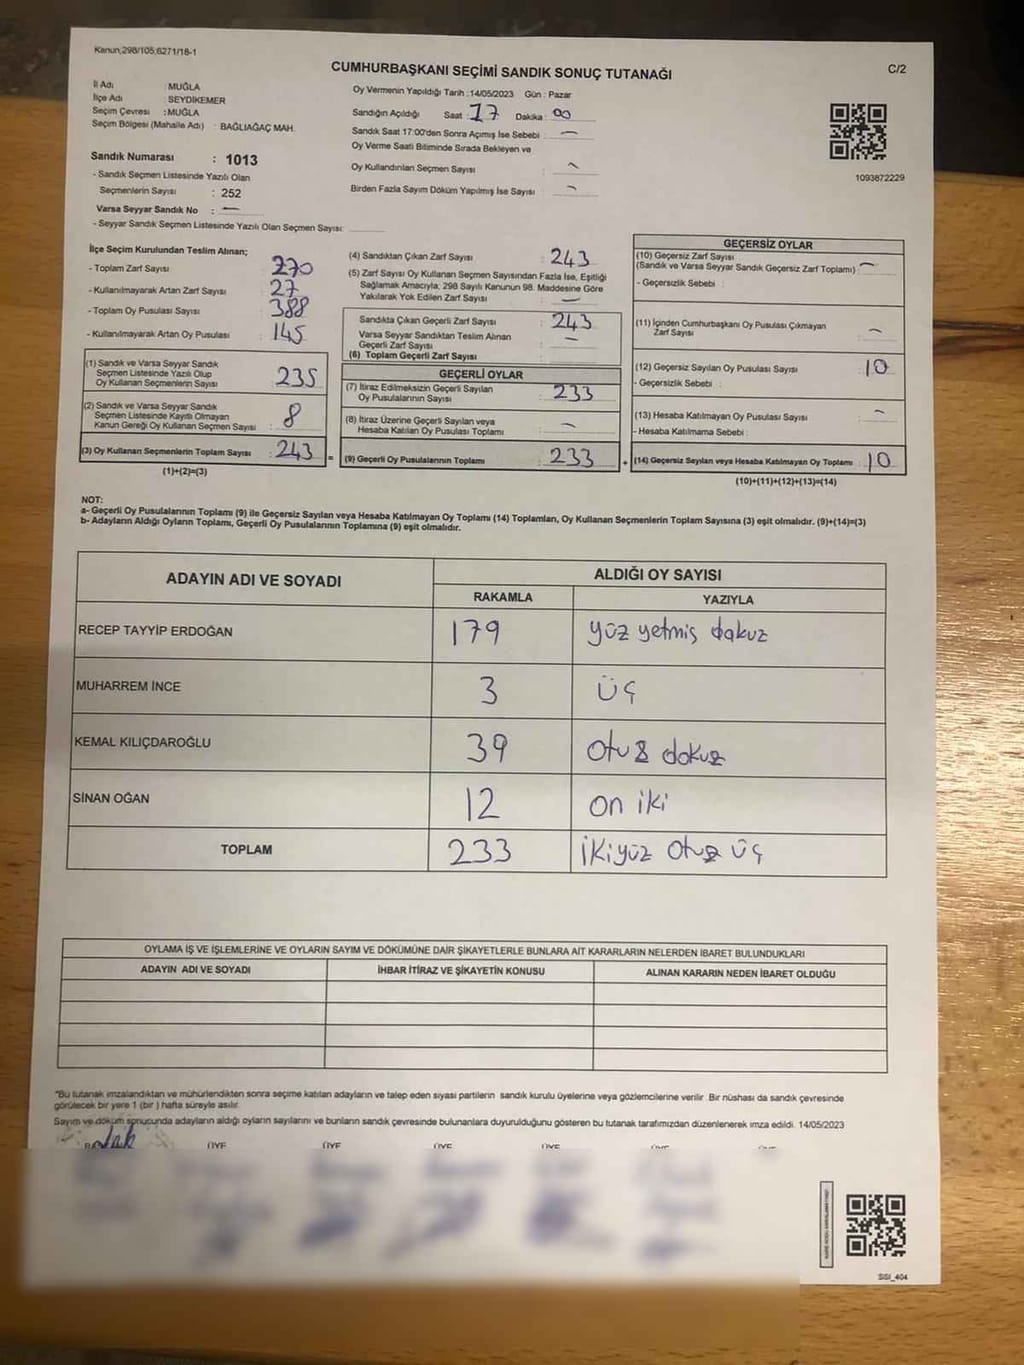 Kanun,298/105;6271/18-1
CUMHURBAŞKANI SEÇİMİ SANDIK SONUÇ TUTANAĞI
C/2
İl Adı : MUĞLA
İlçe Adı : SEYDİKEMER
Seçim Çevresi : MUĞLA
Seçim Bölgesi (Mahalle Adı) : BAĞLIAĞAÇ MAH.
Sandık Numarası : 1013
- Sandık Seçmen Listesinde Yazılı Olan
Seçmenlerin Sayısı : 252
Varsa Seyyar Sandık No : —
- Seyyar Sandık Seçmen Listesinde Yazılı Olan Seçmen Sayısı:
Oy Vermenin Yapıldığı Tarih :14/05/2023 Gün : Pazar
Sandığın Açıldığı Saat : 17 Dakika : 00
Sandık Saat 17:00'den Sonra Açımış İse Sebebi : —
Oy Verme Saati Bitiminde Sırada Bekleyen ve
Oy Kullandırılan Seçmen Sayısı : —
Birden Fazla Sayım Döküm Yapılmış İse Sayısı : —
1093872229
İlçe Seçim Kurulundan Teslim Alınan;
- Toplam Zarf Sayısı : 270
- Kullanılmayarak Artan Zarf Sayısı : 27
- Toplam Oy Pusulası Sayısı : 388
- Kullanılmayarak Artan Oy Pusulası : 145
(1) Sandık ve Varsa Seyyar Sandık
Seçmen Listesinde Yazılı Olup
Oy Kullanan Seçmenlerin Sayısı : 235
(2) Sandık ve Varsa Seyyar Sandık
Seçmen Listesinde Kayıtlı Olmayan
Kanun Gereği Oy Kullanan Seçmen Sayısı : 8
(3) Oy Kullanan Seçmenlerin Toplam Sayısı : 243
(1)+(2)=(3)
(4) Sandıktan Çıkan Zarf Sayısı : 243
(5) Zarf Sayısı Oy Kullanan Seçmen Sayısından Fazla İse, Eşitliği
Sağlamak Amacıyla; 298 Sayılı Kanunun 98. Maddesine Göre
Yakılarak Yok Edilen Zarf Sayısı : —
Sandıkta Çıkan Geçerli Zarf Sayısı : 243
Varsa Seyyar Sandıktan Teslim Alınan
Geçerli Zarf Sayısı : —
(6) Toplam Geçerli Zarf Sayısı
GEÇERLİ OYLAR
(7) İtiraz Edilmeksizin Geçerli Sayılan
Oy Pusulalarının Sayısı : 233
(8) İtiraz Üzerine Geçerli Sayılan veya
Hesaba Katılan Oy Pusulası Toplamı : —
= (9) Geçerli Oy Pusulalarının Toplamı : 233
GEÇERSİZ OYLAR
(10) Geçersiz Zarf Sayısı
(Sandık ve Varsa Seyyar Sandık Geçersiz Zarf Toplamı) : —
- Geçersizlik Sebebi :
(11) İçinden Cumhurbaşkanı Oy Pusulası Çıkmayan
Zarf Sayısı : —
(12) Geçersiz Sayılan Oy Pusulası Sayısı : 10
- Geçersizlik Sebebi :
(13) Hesaba Katılmayan Oy Pusulası Sayısı : —
- Hesaba Katılmama Sebebi :
+ (14) Geçersiz Sayılan veya Hesaba Katılmayan Oy Toplamı : 10
(10)+(11)+(12)+(13)=(14)
NOT:
a- Geçerli Oy Pusulalarının Toplamı (9) ile Geçersiz Sayılan veya Hesaba Katılmayan Oy Toplamı (14) Toplamları, Oy Kullanan Seçmenlerin Toplam Sayısına (3) eşit olmalıdır. (9)+(14)=(3)
b- Adayların Aldığı Oyların Toplamı, Geçerli Oy Pusulalarının Toplamına (9) eşit olmalıdır.
ADAYIN ADI VE SOYADI
ALDIĞI OY SAYISI
RAKAMLA YAZIYLA
RECEP TAYYİP ERDOĞAN 179 yüz yetmiş dokuz
MUHARREM İNCE 3 üç
KEMAL KILIÇDAROĞLU 39 otuz dokuz
SİNAN OĞAN 12 on iki
TOPLAM 233 İkiyüz otuz üç
OYLAMA İŞ VE İŞLEMLERİNE VE OYLARIN SAYIM VE DÖKÜMÜNE DAİR ŞİKAYETLERLE BUNLARA AİT KARARLARIN NELERDEN İBARET BULUNDUKLARI
ADAYIN ADI VE SOYADI İHBAR İTİRAZ VE ŞİKAYETİN KONUSU ALINAN KARARIN NEDEN İBARET OLDUĞU
"Bu tutanak imzalandıktan ve mühürlendikten sonra seçime katılan adayların ve talep eden siyasi partilerin sandık kurulu üyelerine veya gözlemcilerine verilir. Bir nüshası da sandık çevresinde
görülecek bir yere 1 (bir ) hafta süreyle asılır.
Sayım ve döküm sonucunda adayların aldığı oyların sayılarını ve bunların sandık çevresinde bulunanlara duyurulduğunu gösteren bu tutanak tarafımızdan düzenlenerek imza edildi. 14/05/2023
ÜYE ÜYE ÜYE ÜYE ÜYE ÜYE
SSI_404